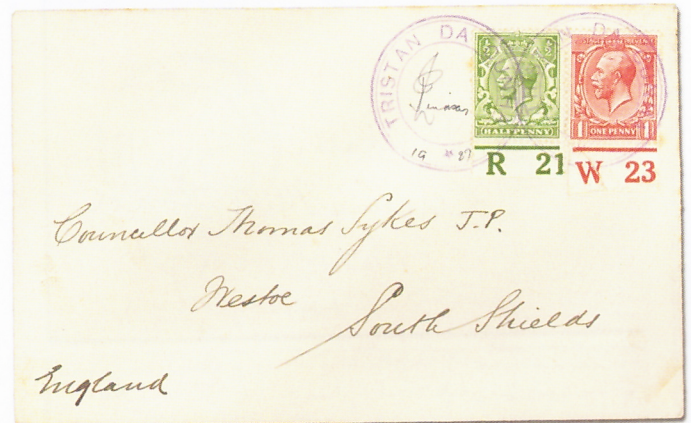 TRISTAN DA
N DA
HALFPENNY
1 ONE PENNY 1
19 27
R 21
W 23
Councillor Thomas Sykes J.P.
Westoe
South Shields
England